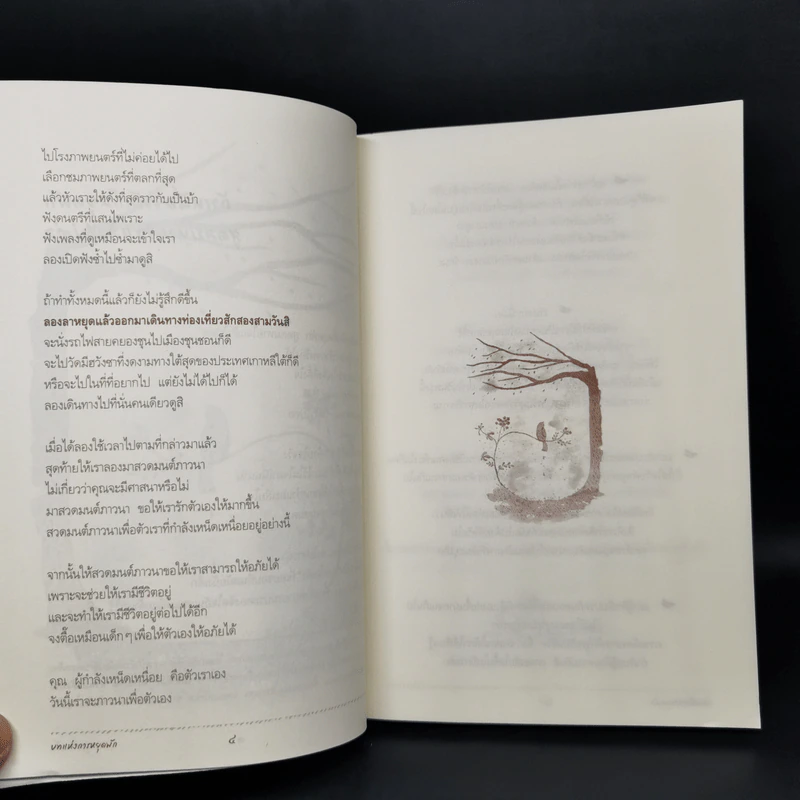 ไปโรงภาพยนตร์ที่ไม่ค่อยได้ไป
เลือกชมภาพยนตร์ที่ตลกที่สุด
แล้วหัวเราะให้ดังที่สุดราวกับเป็นบ้า
ฟังดนตรีที่แสนไพเราะ
ฟังเพลงที่ดูเหมือนจะเข้าใจเรา
ลองเปิดฟังซ้ำไปซ้ำมาดูสิ
ถ้าทำทั้งหมดนี้แล้วก็ยังไม่รู้สึกดีขึ้น
ลองลาหยุดแล้วออกมาเดินทางท่องเที่ยวสักสองสามวันสิ
จะนั่งรถไฟสายคยองชุนไปเมืองชุนชอนก็ดี
จะไปวัดมีฮวังซาที่งดงามทางใต้สุดของประเทศเกาหลีใต้ก็ดี
หรือจะไปในที่ที่อยากไป แต่ยังไม่ได้ไปก็ได้
ลองเดินทางไปที่นั่นคนเดียวดูสิ
เมื่อได้ลองใช้เวลาไปตามที่กล่าวมาแล้ว
สุดท้ายให้เราลองมาสวดมนต์ภาวนา
ไม่เกี่ยวว่าคุณจะมีศาสนาหรือไม่
มาสวดมนต์ภาวนา ขอให้เรารักตัวเองให้มากขึ้น
สวดมนต์ภาวนาเพื่อตัวเราที่กำลังเหน็ดเหนื่อยอยู่อย่างนี้
จากนั้นให้สวดมนต์ภาวนาขอให้เราสามารถให้อภัยได้
เพราะจะช่วยให้เรามีชีวิตอยู่
และจะทำให้เรามีชีวิตอยู่ต่อไปได้อีก
จงดื้อเหมือนเด็กๆ เพื่อให้ตัวเองให้อภัยได้
คุณ ผู้กำลังเหน็ดเหนื่อย คือตัวเราเอง
วันนี้เราจะภาวนาเพื่อตัวเอง
บทแห่งการหยุดพัก ๔